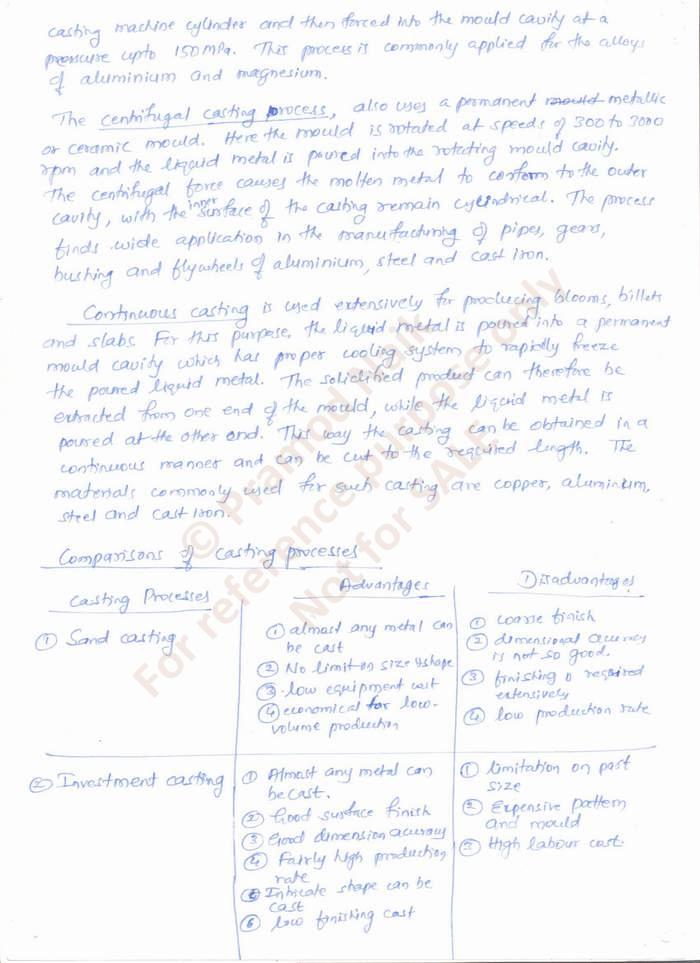 casting machine cylinder and then forced into the mould cavity at a
pressure upto 150 MPa. This process is commonly applied for the alloys
of aluminium and magnesium.
The centrifugal casting process, also uses a permanent mould metallic
or ceramic mould. Here the mould is rotated at speeds of 300 to 3000
rpm and the liquid metal is poured into the rotating mould cavity.
The centrifugal force causes the molten metal to conform to the outer
cavity, with the inner surface of the casting remain cylindrical. The process
finds wide application in the manufacturing of pipes, gears,
bushing and flywheels of aluminium, steel and cast iron.
Continuous casting is used extensively for producing blooms, billets
and slabs. For this purpose, the liquid metal is poured into a permanent
mould cavity which has proper cooling system to rapidly freeze
the poured liquid metal. The solidified product can therefore be
extracted from one end of the mould, while the liquid metal is
poured at the other end. This way the casting can be obtained in a
continuous manner and can be cut to the required length. The
materials commonly used for such casting are copper, aluminium,
steel and cast iron.
© Pramod Naik
For reference purpose only
Not for SALE
Comparisons of casting processes
Casting Processes
Advantages
Disadvantages
① Sand casting
① almost any metal can
be cast
② No limit on size & shape
③ low equipment cost
④ economical for low-
volume production
① coarse finish
② dimensional accuracy
is not so good.
③ finishing required
extensively
④ low production rate
② Investment casting
① Almost any metal can
be cast.
② Good surface finish
③ Good dimension accuracy
④ Fairly high production
rate
⑤ Intricate shape can be
cast
⑥ low finishing cast
① limitation on past
size
② Expensive pattern
and mould
③ High labour cost.